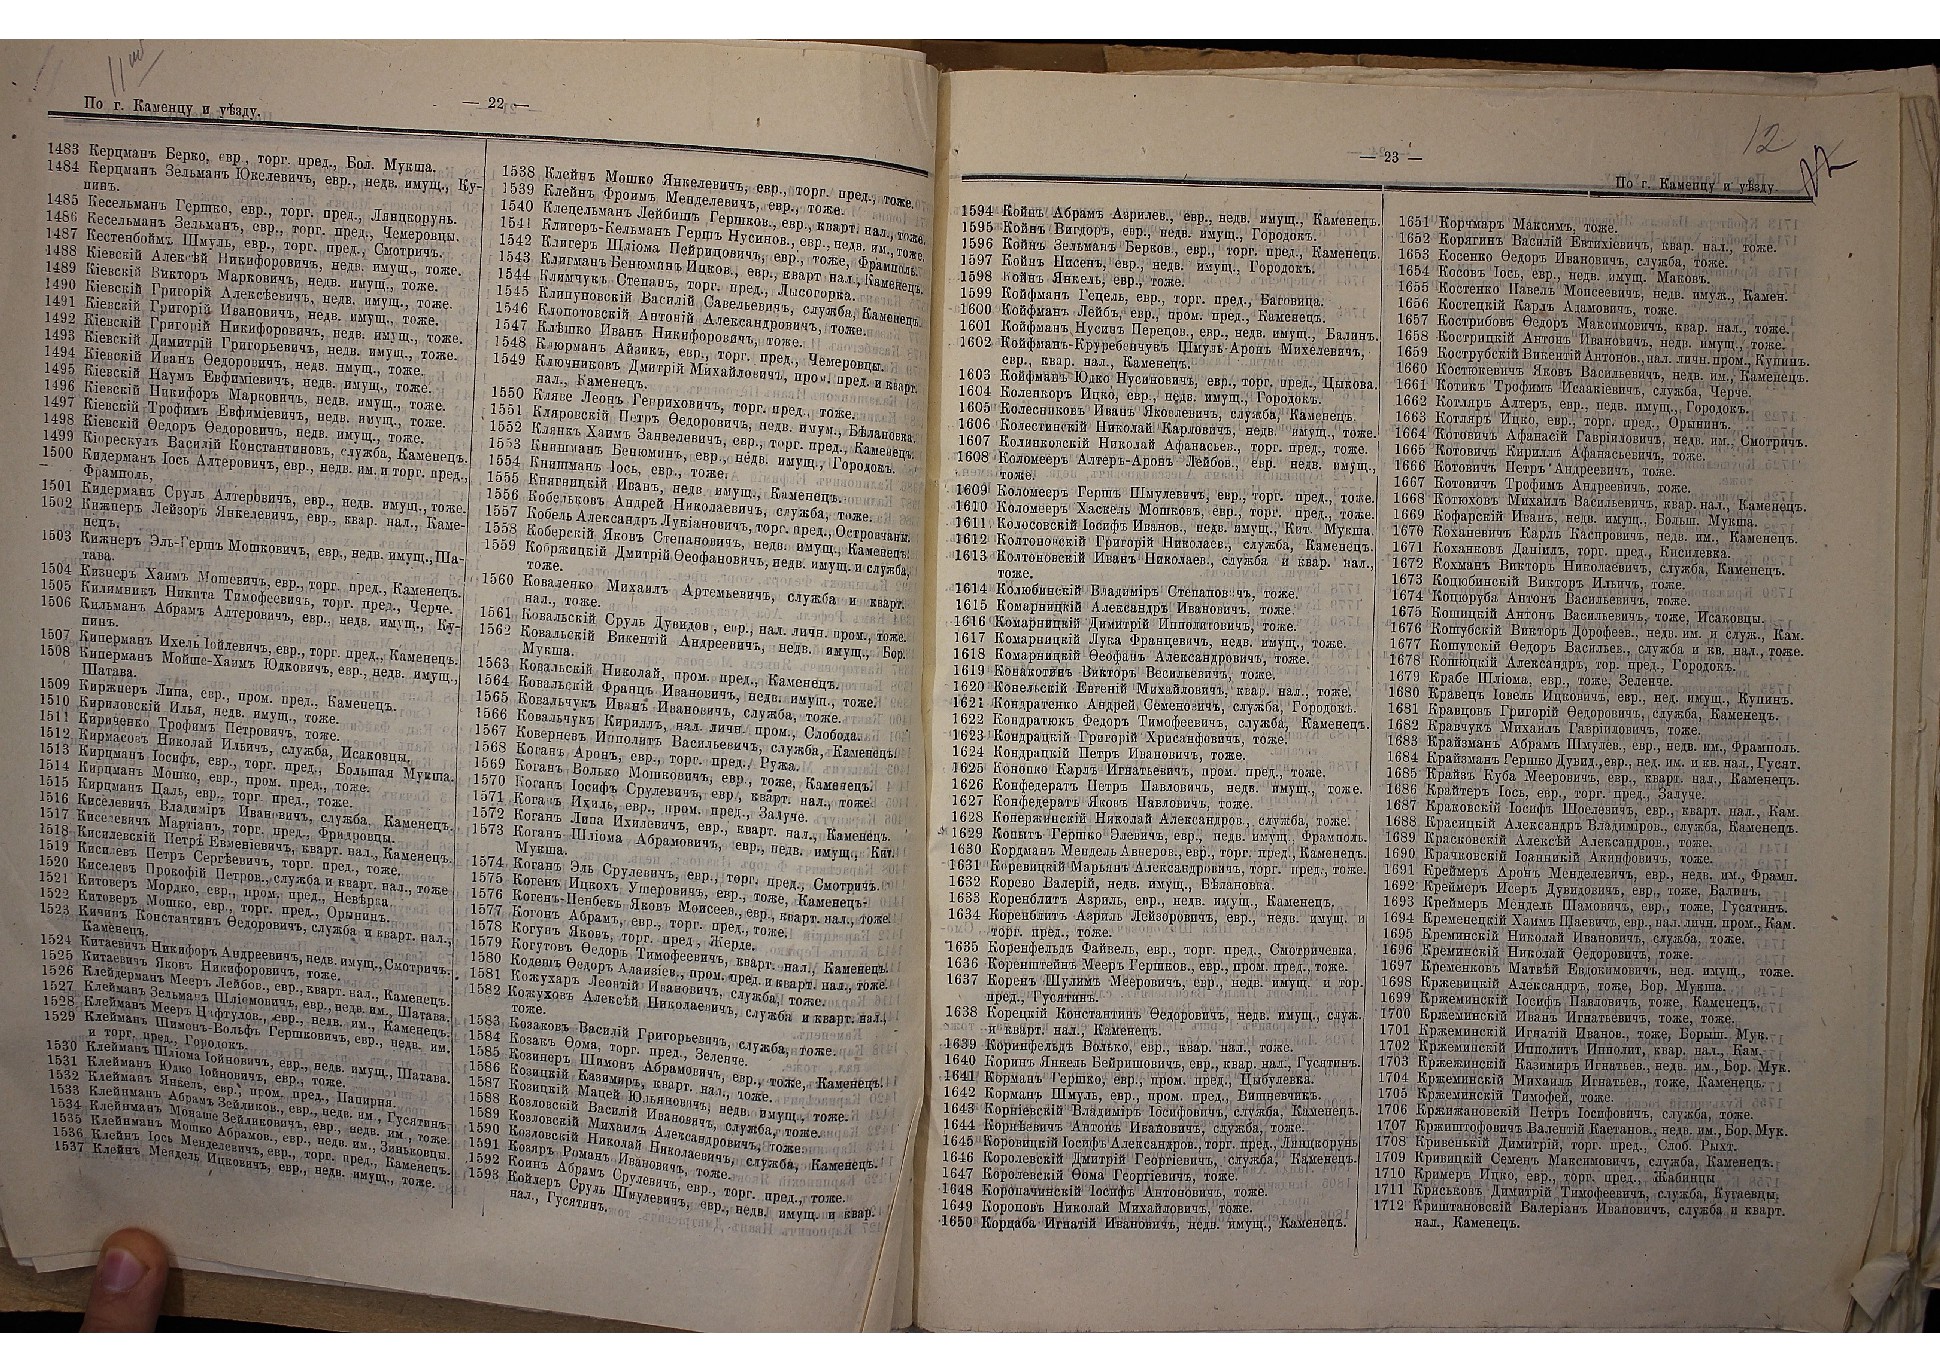 По г. Каменцу и уѣзду.
— 22 —
1483 Керцманъ Берко, евр., торг. пред., Бол. Мукша.
1484 Керцманъ Зельманъ Юкелевичъ, евр., недв. имущ., Ку-
пинъ.
1485 Кесельманъ Гершко, евр., торг. пред., Лянцкорунь.
1486 Кесельманъ Зельманъ, евр., торг. пред., Чемеровцы.
1487 Кестенбоймъ Шмуль, евр., торг. пред., Смотричъ.
1488 Кіевскій Алексѣй Никифоровичъ, недв. имущ., тоже.
1489 Кіевскій Викторъ Марковичъ, недв. имущ., тоже.
1490 Кіевскій Григорій Алексѣевичъ, недв. имущ., тоже.
1491 Кіевскій Григорій Ивановичъ, недв. имущ., тоже.
1492 Кіевскій Григорій Никифоровичъ, недв. имущ., тоже.
1493 Кіевскій Димитрій Григорьевичъ, недв. имущ., тоже.
1494 Кіевскій Иванъ Ѳедоровичъ, недв. имущ., тоже.
1495 Кіевскій Наумъ Евфиміевичъ, недв. имущ., тоже.
1496 Кіевскій Никифоръ Марковичъ, недв. имущ., тоже.
1497 Кіевскій Трофимъ Евфиміевичъ, недв. имущ., тоже.
1498 Кіевскій Ѳедоръ Ѳедоровичъ, недв. имущ., тоже.
1499 Кіорескулъ Василій Константиновъ, служба, Каменецъ.
1500 Кидерманъ Іось Алтеровичъ, евр., недв. им. и торг. пред.,
Фрамполь,
1501 Кидерманъ Сруль Алтеровичъ, евр., недв. имущ., тоже.
1502 Кижнеръ Лейзоръ Янкелевичъ, евр., квар. нал., Каме-
нецъ.
1503 Кижнеръ Эль-Гершъ Мошковичъ, евр., недв. имущ., Ша-
тава.
1504 Кизнеръ Хаимъ Мошевичъ, евр., торг. пред., Каменецъ.
1505 Килимникъ Никита Тимофеевичъ, торг. пред., Черче.
1506 Кильманъ Абрамъ Алтеровичъ, евр., недв. имущ., Ку-
пинъ.
1507 Киперманъ Ихель Іойлевичъ, евр., торг. пред., Каменецъ.
1508 Киперманъ Мойше-Хаимъ Юдковичъ, евр., недв. имущ.,
Шатава.
1509 Киржнеръ Липа, евр., пром. пред., Каменецъ.
1510 Кириловскій Илья, недв. имущ., тоже.
1511 Кириченко Трофимъ Петровичъ, тоже.
1512 Кирмасовъ Николай Ильичъ, служба, Исаковцы.
1513 Кирцманъ Іосифъ, евр., торг. пред., Большая Мукша.
1514 Кирцманъ Мошко, евр., пром. пред., тоже.
1515 Кирцманъ Цаль, евр., торг. пред., тоже.
1516 Киселевичъ Владиміръ Ивановичъ, служба, Каменецъ.
1517 Киселевичъ Мартіанъ, торг. пред., Фридровцы.
1518 Кисилевскій Петръ Евменіевичъ, кварт. нал., Каменецъ.
1519 Киселевъ Петръ Сергѣевичъ, торг. пред., тоже.
1520 Киселевъ Прокофій Петров., служба и кварт. нал., тоже
1521 Китоверъ Мордко, евр., пром. пред., Невѣрка.
1522 Китоверъ Мошко, евр., торг. пред., Орынинъ.
1523 Кичинъ Константинъ Ѳедоровичъ, служба и кварт. нал.,
Каменецъ.
1524 Китаевичъ Никифоръ Андреевичъ, недв. имущ., Смотричъ.
1525 Китаевичъ Яковъ Никифоровичъ, тоже.
1526 Клейдерманъ Мееръ Лейбов., евр., кварт. нал., Каменецъ.
1527 Клейманъ Зельманъ Шліомовичъ, евр., недв. им., Шатава.
1528 Клейманъ Мееръ Цафтулов., евр., недв. им., Каменецъ.
1529 Клейманъ Шимонъ-Вольфъ Гершковичъ, евр., недв. им.
и торг. пред., Городокъ.
1530 Клейманъ Шліома Іойновичъ, евр., недв. имущ., Шатава.
1531 Клейманъ Юдко Іойновичъ, евр., тоже.
1532 Клейманъ Янкель, евр., пром. пред., Папирня.
1533 Клейнманъ Абрамъ Зейликов., евр., недв. им., Гусятинъ.
1534 Клейнманъ Монаше Зейликовичъ, евр., недв. им., тоже.
1535 Клейнманъ Мошко Абрамов., евр., недв. им., Зиньковцы.
1536 Клейнъ Іось Менделевичъ, евр., торг. пред., Каменецъ.
1537 Клейнъ Мендель Ицковичъ, евр., недв. имущ., тоже.
1538 Клейнъ Мошко Янкелевичъ, евр., торг. пред., тоже.
1539 Клейнъ Фроимъ Менделевичъ, евр., тоже.
1540 Клецельманъ Лейбишъ Гершков., евр., кварт. нал., тоже.
1541 Клигеръ-Кельманъ Гершъ Нусинов., евр., недв. им., тоже.
1542 Клигеръ Шліома Пейрицовичъ, евр., тоже, Фрамполь.
1543 Клигманъ Бенюминъ Ицков., евр., кварт. нал., Каменецъ.
1544 Климчукъ Степанъ, торг. пред., Лысогорка.
1545 Клипуновскій Василій Савельевичъ, служба, Каменецъ.
1546 Клопотовскій Антоній Александровичъ, тоже.
1547 Клѣшко Иванъ Никифоровичъ, тоже.
1548 Клюрманъ Айзикъ, евр., торг. пред., Чемеровцы.
1549 Ключниковъ Дмитрій Михайловичъ, пром. пред. и кварт.
нал., Каменецъ.
1550 Кляве Леонъ Генриховичъ, торг. пред., тоже.
1551 Кляровскій Петръ Ѳедоровичъ, недв. имущ., Бѣлановка.
1552 Клянкъ Хаимъ Занвелевичъ, евр., торг. пред., Каменецъ.
1553 Книшманъ Бенюминъ, евр., недв. имущ., Городокъ.
1554 Книпманъ Іось, евр., тоже.
1555 Княгницкій Иванъ, недв. имущ., Каменецъ.
1556 Кобельковъ Андрей Николаевичъ, служба, тоже.
1557 Кобель Александръ Лукіановичъ, торг. пред., Островчаны.
1558 Коберскій Яковъ Степановичъ, недв. имущ., Каменецъ.
1559 Кобржицкій Дмитрій Ѳеофановичъ, недв. имущ. и служба,
тоже.
1560 Коваленко Михаилъ Артемьевичъ, служба и кварт.
нал., тоже.
1561 Ковальскій Сруль Дувидов., евр., нал. личн. пром., тоже.
1562 Ковальскій Викентій Андреевичъ, недв. имущ., Бор.
Мукша.
1563 Ковальскій Николай, пром. пред., Каменецъ.
1564 Ковальскій Францъ Ивановичъ, недв. имущ., тоже.
1565 Ковальчукъ Иванъ Ивановичъ, служба, тоже.
1566 Ковальчукъ Кириллъ, нал. личн. пром., Слобода.
1567 Коверневъ Ипполитъ Васильевичъ, служба, Каменецъ.
1568 Коганъ Аронъ, евр., торг. пред., Ружа.
1569 Коганъ Волько Мошковичъ, евр., тоже, Каменецъ.
1570 Коганъ Іосифъ Срулевичъ, евр., кварт. нал., тоже.
1571 Коганъ Ихиль, евр., пром. пред., Залуче.
1572 Коганъ Липа Ихилевичъ, евр., кварт. нал., Каменецъ.
1573 Коганъ Шліома Абрамовичъ, евр., недв. имущ., Кит.
Мукша.
1574 Коганъ Эль Срулевичъ, евр., торг. пред., Смотричъ.
1575 Когенъ Ицкохъ Ушеровичъ, евр., тоже, Каменецъ.
1576 Когенъ-Пенбекъ Яковъ Моисеев., евр., кварт. нал., тоже.
1577 Когонъ Абрамъ, евр., торг. пред., тоже.
1578 Когунъ Яковъ, торг. пред., Жерде.
1579 Когутовъ Ѳедоръ Тимофеевичъ, кварт. нал., Каменецъ.
1580 Кодешъ Ѳедоръ Алаизіев., пром. пред. и кварт. нал., тоже.
1581 Кожухаръ Леонтій Ивановичъ, служба, тоже.
1582 Кожуховъ Алексѣй Николаевичъ, служба и кварт. нал.,
тоже.
1583 Козаковъ Василій Григорьевичъ, служба, тоже.
1584 Козакъ Ѳома, торг. пред., Зеленче.
1585 Козинеръ Шимонъ Абрамовичъ, евр., тоже, Каменецъ.
1586 Козицкій Казимиръ, кварт. нал., тоже.
1587 Козицкій Мацей Юльяновичъ, недв. имущ., тоже.
1588 Козловскій Василій Ивановичъ, служба, тоже.
1589 Козловскій Михаилъ Александровичъ, тоже.
1590 Козловскій Николай Николаевичъ, служба, Каменецъ.
1591 Козяръ Романъ Ивановичъ, тоже.
1592 Коинъ Абрамъ Срулевичъ, евр., торг. пред., тоже.
1593 Койлеръ Сруль Шмулевичъ, евр., недв. имущ. и квар.
нал., Гусятинъ.
12
— 23 —
По г. Каменцу и уѣзду.
1594 Койнъ Абрамъ Азрилев., евр., недв. имущ., Каменецъ.
1595 Койнъ Вигдоръ, евр., недв. имущ., Городокъ.
1596 Койнъ Зельманъ Берков., евр., торг. пред., Каменецъ.
1597 Койнъ Нисенъ, евр., недв. имущ., Городокъ.
1598 Койнъ Янкель, евр., тоже.
1599 Койфманъ Гецель, евр., торг. пред., Баговица.
1600 Койфманъ Лейбъ, евр., пром. пред., Каменецъ.
1601 Койфманъ Нусинъ Перецов., евр., недв. имущ., Балинъ.
1602 Койфманъ-Круребенчукъ Шмуль-Аронъ Михелевичъ,
евр., квар. нал., Каменецъ.
1603 Койфманъ Юдко Нусиновичъ, евр., торг. пред., Цыкова.
1604 Коленкоръ Ицко, евр., недв. имущ., Городокъ.
1605 Колесниковъ Иванъ Яковлевичъ, служба, Каменецъ.
1606 Колестинскій Николай Карловичъ, недв. имущ., тоже.
1607 Колинковскій Николай Афанасьев., торг. пред., тоже.
1608 Коломееръ Алтеръ-Аронъ Лейбов., евр. недв. имущ.,
тоже.
1609 Коломееръ Гершъ Шмулевичъ, евр., торг. пред., тоже.
1610 Коломееръ Хаскель Мошковъ, евр., торг. пред., тоже.
1611 Колосовскій Іосифъ Иванов., недв. имущ., Кит. Мукша.
1612 Колтоновскій Григорій Николаев., служба, Каменецъ.
1613 Колтоновскій Иванъ Николаев., служба и квар. нал.,
тоже.
1614 Колюбинскій Владиміръ Степановичъ, тоже.
1615 Комарницкій Александръ Ивановичъ, тоже.
1616 Комарницкій Димитрій Ипполитовичъ, тоже.
1617 Комарницкій Лука Францевичъ, недв. имущ., тоже.
1618 Комарницкій Ѳеофанъ Александровичъ, тоже.
1619 Ковакотинъ Викторъ Весильевичъ, тоже.
1620 Конельскій Евгеній Михайловичъ, квар. нал., тоже.
1621 Кондратенко Андрей Семеновичъ, служба, Городокъ.
1622 Кондратюкъ Федоръ Тимофеевичъ, служба, Каменецъ.
1623 Кондрацкій Григорій Хрисанфовичъ, тоже.
1624 Кондрацкій Петръ Ивановичъ, тоже.
1625 Конопко Карлъ Игнатьевичъ, пром. пред., тоже.
1626 Конфедератъ Петръ Павловичъ, недв. имущ., тоже.
1627 Конфедератъ Яковъ Павловичъ, тоже.
1628 Конержинскій Николай Александров., служба, тоже.
1629 Копытъ Гершко Элевичъ, евр., недв. имущ., Фрамполь.
1630 Кордманъ Мендель Авнеров., евр., торг. пред., Каменецъ.
1631 Коревицкій Марьянъ Александровичъ, торг. пред., тоже.
1632 Корево Валерій, недв. имущ., Бѣлановка.
1633 Коренблитъ Азриль, евр., недв. имущ., Каменецъ.
1634 Коренблитъ Азриль Лейзоровичъ, евр., недв. имущ. и
торг. пред., тоже.
1635 Коренфельдъ Файвель, евр., торг. пред., Смотричевка.
1636 Коренштейнъ Мееръ Гершков., евр., пром. пред., тоже.
1637 Коренъ Шулимъ Мееровичъ, евр., недв. имущ. и тор.
пред., Гусятинъ.
1638 Корецкій Константинъ Ѳедоровичъ, недв. имущ., служ.
и кварт. нал., Каменецъ.
1639 Коринфельдъ Волько, евр., квар. нал., тоже.
1640 Коринъ Янкель Бейришовичъ, евр., квар. нал., Гусятинъ.
1641 Корманъ Гершко, евр., пром. пред., Цыбулевка.
1642 Корманъ Шмуль, евр., пром. пред., Вишневчикъ.
1643 Корніевскій Владиміръ Іосифовичъ, служба, Каменецъ.
1644 Корнѣевичъ Антонъ Ивановичъ, служба, тоже.
1645 Коровицкій Іосифъ Александров., торг. пред., Лянцкорунь
1646 Королевскій Дмитрій Георгіевичъ, служба, Каменецъ.
1647 Королевскій Ѳома Георгіевичъ, тоже.
1648 Коропачинскій Іосифъ Антоновичъ, тоже.
1649 Короповъ Николай Михайловичъ, тоже.
1650 Корцаба Игнатій Ивановичъ, недв. имущ., Каменецъ.
1651 Корчмаръ Максимъ, тоже.
1652 Корягинъ Василій Евтихіевичъ, квар. нал., тоже.
1653 Косенко Ѳедоръ Ивановичъ, служба, тоже.
1654 Косовъ Іось, евр., недв. имущ. Маковъ.
1655 Костенко Павелъ Моисеевичъ, недв. имуж., Камен.
1656 Костецкій Карлъ Адамовичъ, тоже.
1657 Кострибовъ Ѳедоръ Максимовичъ, квар. нал., тоже.
1658 Кострицкій Антонъ Ивановичъ, недв. имущ., тоже.
1659 Кострубскій Викентій Антонов., нал. личн. пром., Купинъ.
1660 Костюкевичъ Яковъ Васильевичъ, недв. им., Каменецъ.
1661 Котикъ Трофимъ Исаакіевичъ, служба, Черче.
1662 Котляръ Алтеръ, евр., недв. имущ., Городокъ.
1663 Котляръ Ицко, евр., торг. пред., Орынинъ.
1664 Котовичъ Афанасій Гавріиловичъ, недв. им., Смотрич.
1665 Котовичъ Кириллъ Афанасьевичъ, тоже.
1666 Котовичъ Петръ Андреевичъ, тоже.
1667 Котовичъ Трофимъ Андреевичъ, тоже.
1668 Котюховъ Михаилъ Васильевичъ, квар. нал., Каменецъ.
1669 Кофарскій Иванъ, недв. имущ., Больш. Мукша.
1670 Коханевичъ Карлъ Каспровичъ, недв. им., Каменецъ.
1671 Коханковъ Даніилъ, торг. пред., Кисилевка.
1672 Кохманъ Викторъ Николаевичъ, служба, Каменецъ.
1673 Коцюбинскій Викторъ Ильичъ, тоже.
1674 Коцюруба Антонъ Васильевичъ, тоже.
1675 Кошицкій Антонъ Васильевичъ, тоже, Исаковцы.
1676 Кошубскій Викторъ Дорофеев., недв. им. и служ., Кам.
1677 Кошутскій Ѳедоръ Васильев., служба и кв. нал., тоже.
1678 Кошюцкій Александръ, тор. пред., Городокъ.
1679 Крабе Шліома, евр., тоже, Зеленче.
1680 Кравецъ Іовель Ицковичъ, евр., нед. имущ., Купинъ.
1681 Кравцовъ Григорій Ѳедоровичъ, служба, Каменецъ.
1682 Кравчукъ Михаилъ Гавріиловичъ, тоже.
1683 Крайзманъ Абрамъ Шмулев., евр., недв. им., Фрамполь.
1684 Крайзманъ Гершко Дувид., евр., нед. им. и кв. нал., Гусят.
1685 Крайзъ Куба Мееровичъ, евр., кварт. нал., Каменецъ.
1686 Крайтеръ Іось, евр., торг. пред., Залуче.
1687 Краковскій Іосифъ Шоелевичъ, евр., кварт. нал., Кам.
1688 Красицкій Александръ Владиміров., служба, Каменецъ.
1689 Красковскій Алексѣй Александров., тоже.
1690 Крачковскій Іоанникій Акинфовичъ, тоже.
1691 Креймеръ Аронъ Менделевичъ, евр., недв. им., Фрамп.
1692 Креймеръ Исеръ Дувидовичъ, евр., тоже, Балинъ.
1693 Креймеръ Мендель Шамовичъ, евр., тоже, Гусятинъ.
1694 Кременецкій Хаимъ Шаевичъ, евр., нал. личн. пром., Кам.
1695 Креминскій Николай Ивановичъ, служба, тоже.
1696 Креминскій Николай Ѳедоровичъ, тоже.
1697 Кременковъ Матвѣй Евдокимовичъ, нед. имущ., тоже.
1698 Кржевицкій Александръ, тоже, Бор. Мукша.
1699 Кржеминскій Іосифъ Павловичъ, тоже, Каменецъ.
1700 Кржеминскій Иванъ Игнатьевичъ, тоже, тоже.
1701 Кржеминскій Игнатій Иванов., тоже, Борыш. Мук.
1702 Кржеминскій Ипполитъ Ипполит., квар. нал., Кам.
1703 Кржежинскій Казимиръ Игнатьев., недв. им., Бор. Мук.
1704 Кржеминскій Михаилъ Игнатьев., тоже, Каменецъ.
1705 Кржеминскій Тимофей, тоже.
1706 Кржижановскій Петръ Іосифовичъ, служба, тоже.
1707 Кржиштофовичъ Валентій Каетанов., недв. им., Бор. Мук.
1708 Кривенькій Димитрій, торг. пред., Слоб. Рыхт.
1709 Кривицкій Семенъ Максимовичъ, служба, Каменецъ.
1710 Кримеръ Ицко, евр., торг. пред., Жабинцы
1711 Криськовъ Димитрій Тимофеевичъ, служба, Кугаевцы,
1712 Криштановскій Валеріанъ Ивановичъ, служба и кварт.
нал., Каменецъ.